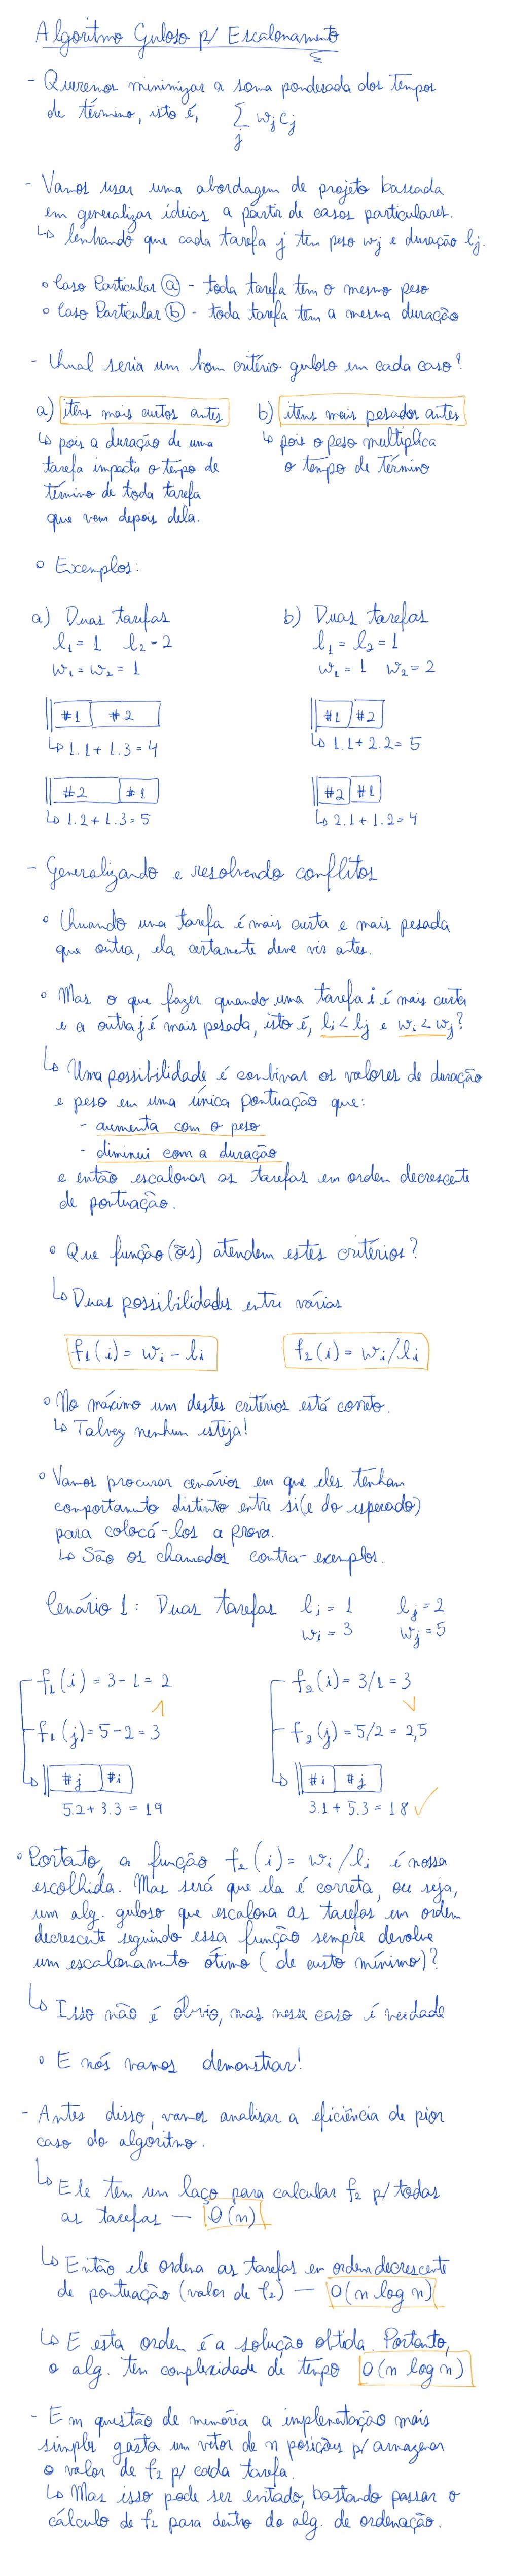 Algoritmo Guloso p/ Escalonamento
- Queremos minimizar a soma ponderada dos tempos
de término, isto é, ∑_j w_j c_j
- Vamos usar uma abordagem de projeto baseada
em generalizar ideias a partir de casos particulares.
↳ lembrando que cada tarefa j tem peso w_j e duração l_j.
o Caso Particular (a) - toda tarefa tem o mesmo peso
o Caso Particular (b) - toda tarefa tem a mesma duração
- Qual seria um bom critério guloso em cada caso?
a) itens mais curtos antes
↳ pois a duração de uma
tarefa impacta o tempo de
término de toda tarefa
que vem depois dela.
b) itens mais pesados antes
↳ pois o peso multiplica
o tempo de término
o Exemplos:
a) Duas tarefas
l₁ = 1 l₂ = 2
w₁ = w₂ = 1
#1 #2
↳ 1.1 + 1.3 = 4
#2 #1
↳ 1.2 + 1.3 = 5
b) Duas tarefas
l₁ = l₂ = 1
w₁ = 1 w₂ = 2
#1 #2
↳ 1.1 + 2.2 = 5
#2 #1
↳ 2.1 + 1.2 = 4
- Generalizando e resolvendo conflitos
o Quando uma tarefa é mais curta e mais pesada
que outra, ela certamente deve vir antes.
o Mas o que fazer quando uma tarefa i é mais curta
e a outra j é mais pesada, isto é, l_i < l_j e w_i < w_j?
↳ Uma possibilidade é combinar os valores de duração
e peso em uma única pontuação que:
- aumenta com o peso
- diminui com a duração
e então escalonar as tarefas em ordem decrescente
de pontuação.
o Que função(ões) atendem estes critérios?
↳ Duas possibilidades entre várias
f₁(i) = w_i - l_i f₂(i) = w_i/l_i
o No máximo um destes critérios está correto.
↳ Talvez nenhum esteja!
o Vamos procurar cenários em que eles tenham
comportamento distinto entre si (e do esperado)
para colocá-los a prova.
↳ São os chamados contra-exemplos.
Cenário 1: Duas tarefas l_i = 1 l_j = 2
w_i = 3 w_j = 5
f₁(i) = 3 - 1 = 2
^
f₁(j) = 5 - 2 = 3
↳ #j #i
5.2 + 3.3 = 19
f₂(i) = 3/1 = 3
v
f₂(j) = 5/2 = 2,5
↳ #i #j
3.1 + 5.3 = 18 ✓
o Portanto, a função f₂(i) = w_i/l_i é nossa
escolhida. Mas será que ela é correta, ou seja,
um alg. guloso que escalona as tarefas em ordem
decrescente seguindo essa função sempre devolve
um escalonamento ótimo (de custo mínimo)?
↳ Isso não é óbvio, mas nesse caso é verdade
o E nós vamos demonstrar!
- Antes disso, vamos analisar a eficiência de pior
caso do algoritmo.
↳ Ele tem um laço para calcular f₂ p/ todas
as tarefas — O(n)
↳ Então ele ordena as tarefas em ordem decrescente
de pontuação (valor de f₂) — O(n log n)
↳ E esta ordem é a solução obtida. Portanto,
o alg. tem complexidade de tempo O(n log n)
- Em questão de memória a implementação mais
simples gasta um vetor de n posições p/ armazenar
o valor de f₂ p/ cada tarefa.
↳ Mas isso pode ser evitado, bastando passar o
cálculo de f₂ para dentro do alg. de ordenação.